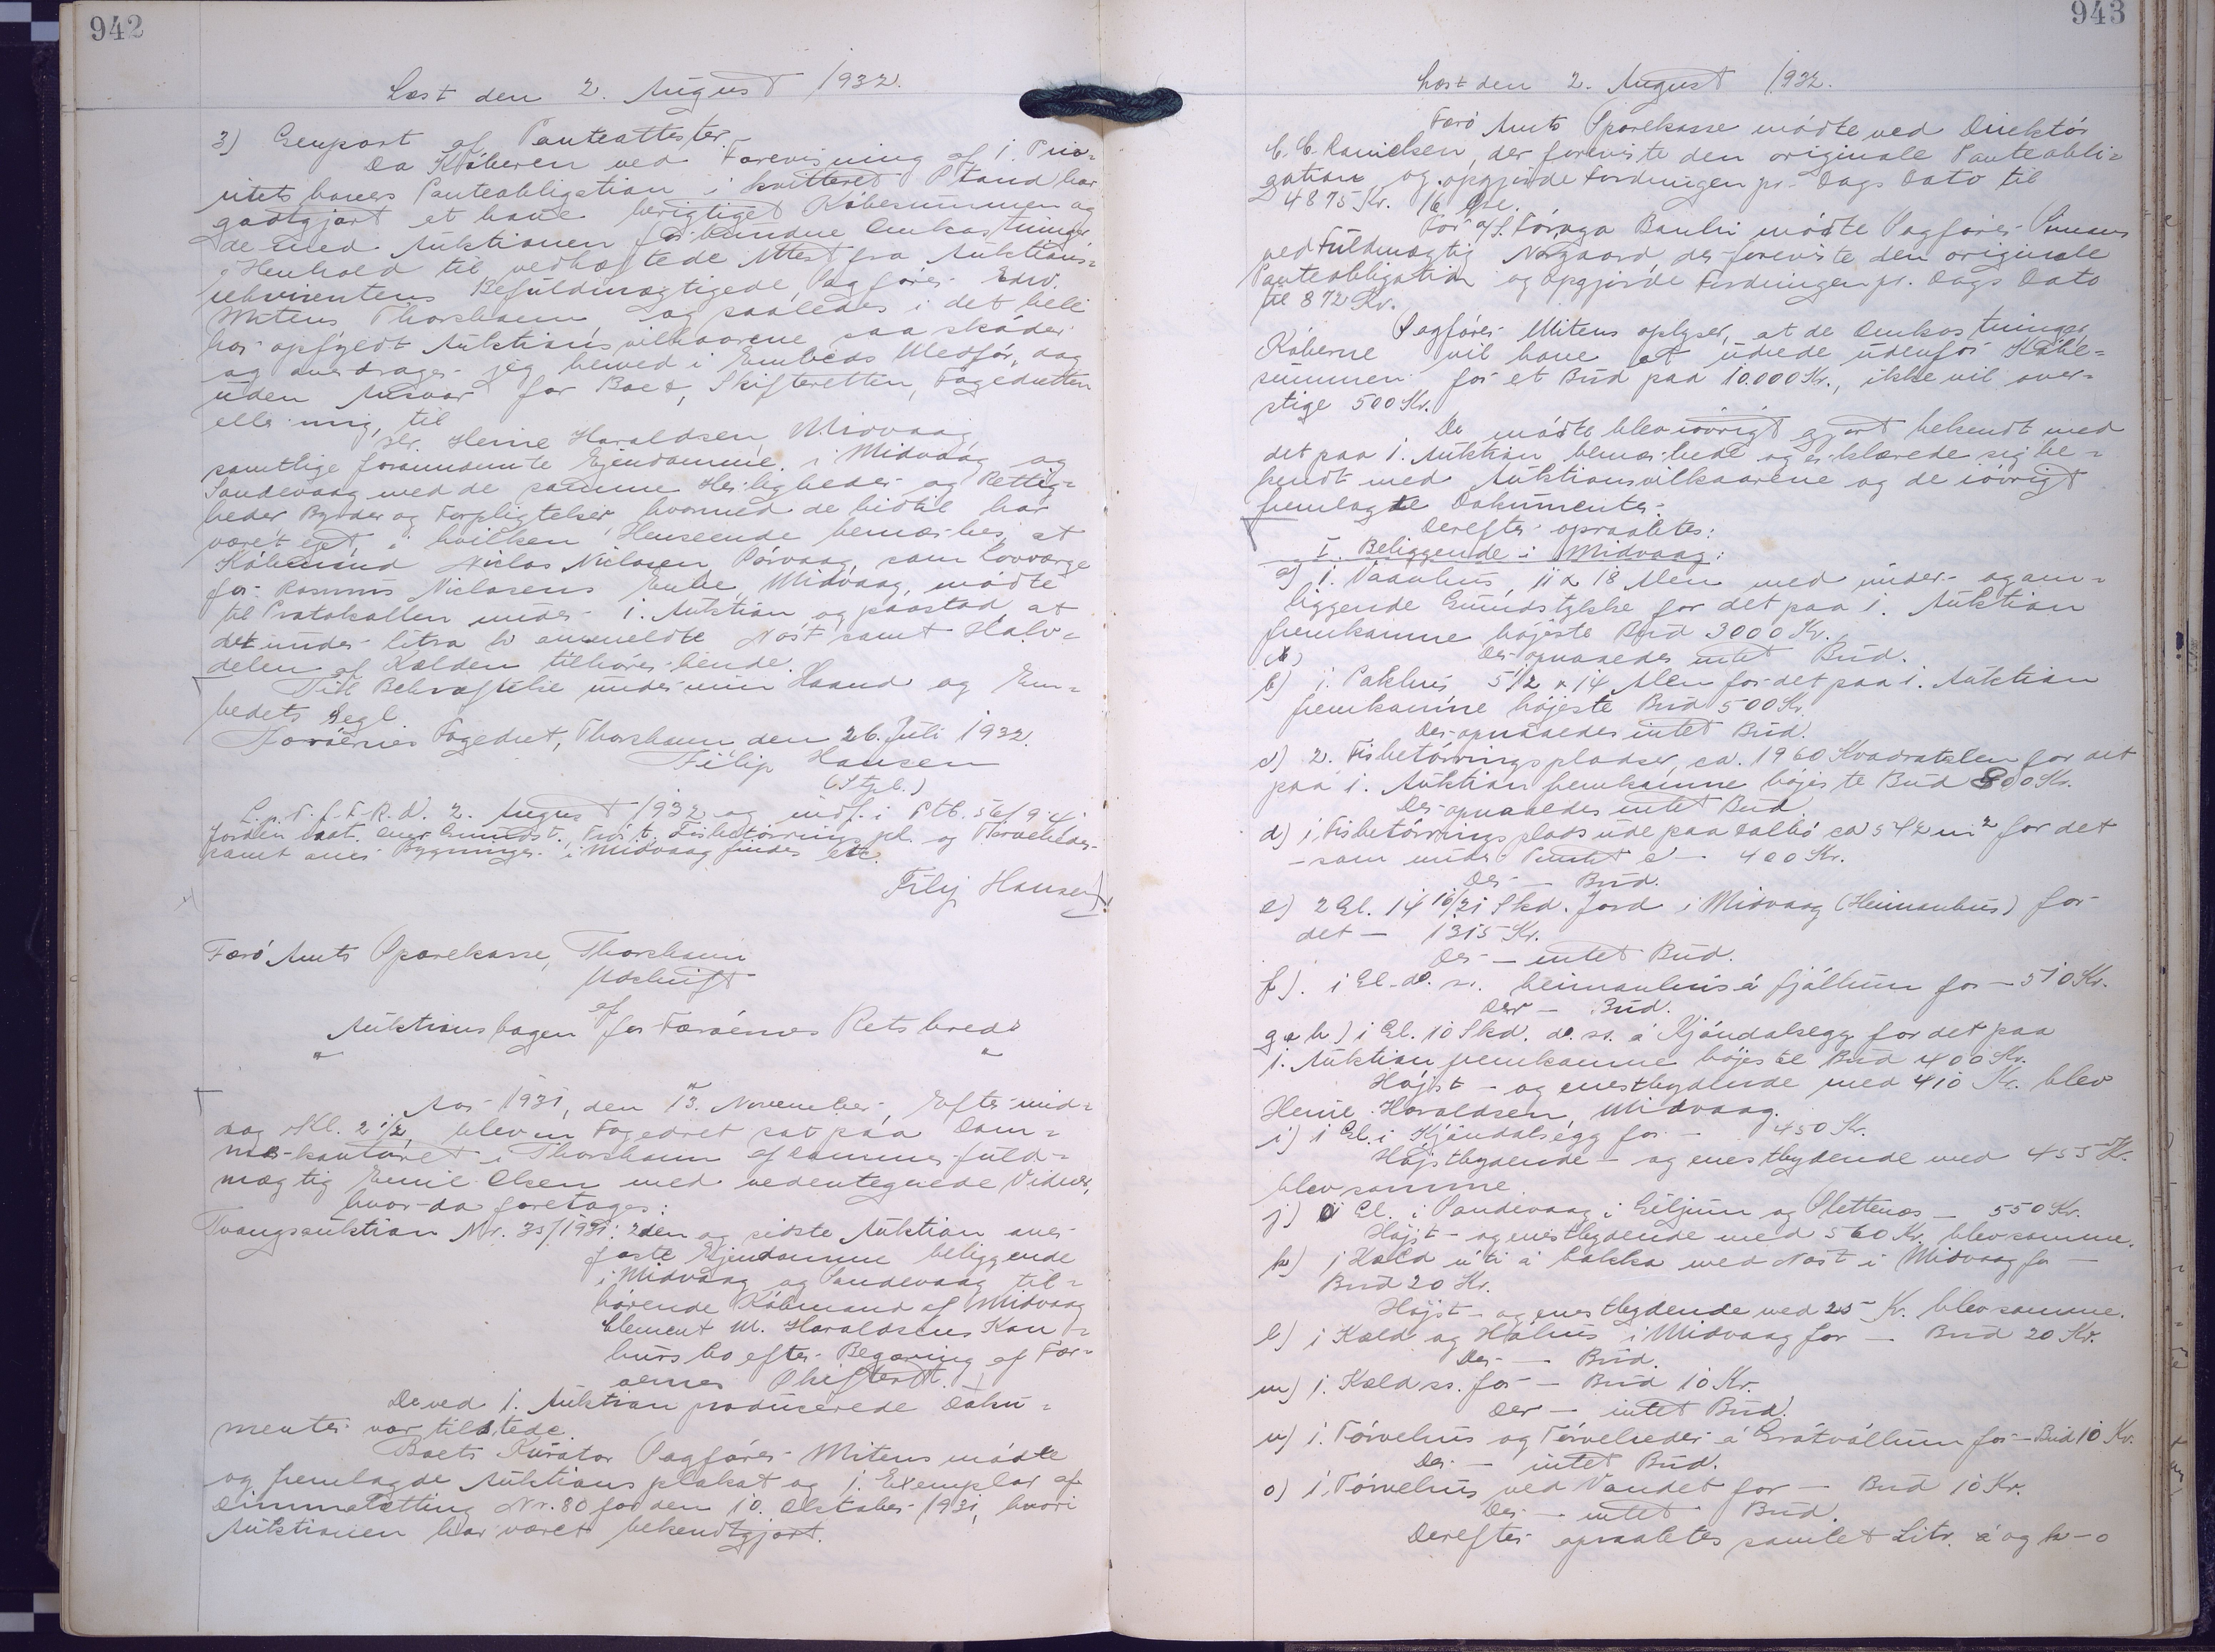 942
Læst den 2. August 1932.
3) Genpart af Panteattester.
Da Køberen ved Forevisning af 1. Prio=
ritets havers Panteobligation i kvitteret Stand har
godtgjort at have berigtiget Købesummen og
de med Auktionen forbundne Omkostninger
i Henhold til vedhæftede Attest fra Auktions=
rekvirentens Befuldmægtigede, Sagfører Edw.
Mitens Thorshavn og saaledes i det hele
har opfyldt Auktionsvilkaarene saa skøder
og overdrager jeg herved i Embeds Medfør, dog
uden Ansvar for Boet, Skifteretten, Fogedretten
eller mig, til
Hr. Heine Haraldsen, Midvaag,
samtlige forannævnte Ejendomme i Midvaag og
Sandevaag med de samme Herligheder og Rettig=
heder Byrder og Forpligtelser, hvormed de hidtil har
været ejet, i hvilken Henseende bemærkes, at
Købmand Niclas Niclasen, Sørvaag, som Lavværge
for Rasmus Niclasens Enke, Midvaag, mødte
til Protokollen under 1. Auktion og paastod, at
det under litra k anmeldte Nøst samt Halv=
delen af Kælden tilhører hende.
Til Bekræftelse under min Haand og Em=
bedets Segl.
Færøernes Fogedret, Thorshavn den 26. Juli 1932.
Filip Hansen
(Stpl.)
L.p.T.f.F.R.d. 2. August 1932 og indf. i Ptb. 56/94
Jorden mat. over Grundst., Fisketørringspl. og Tørveheder
samt over Bygninger i Midvaag findes etc.
Filip Hansen
Færø Amts Sparekasse, Thorshavn
Udskrift
af
Auktionsbogen for Færøernes Retskreds
" "
Aar 1931, den 13. November, Eftermid=
dag Kl. 2 1/2, blev en Fogedret sat paa Dom=
merkontoret i Thorshavn af Dommerfuld=
mægtig Emil Olsen med vedentegnede Vidner,
hvorda foretages:
Tvangsauktion Nr. 35/1931: 2den og sidste Auktion over
faste Ejendomme beliggende
i Midvaag og Sandevaag til=
hørende Købmand af Midvaag
Clement M. Haraldsens Kon=
kursbo efter Begæring af Fær=
øernes Skifteret.
De ved 1. Auktion producerede Doku=
menter var tilstede.
Boets Kurator Sagfører Mitens mødte
og fremlagde Auktionsplakat og 1. Exemplar af
Dimmalætting Nr. 80 for den 10. Oktober 1931, hvori
Auktionen har været bekendtgjort.
943
Læst den 2. August 1932.
Færø Amts Sparekasse mødte ved Direktør
C. C. Danielsen, der foreviste den originale Panteobli=
gation og opgjorde Fordringen pr. Dags Dato til
4875 Kr. 16 Øre.
For A/S. Føroya Banki mødte Sagfører
ved Fuldmægtig Norgaard, der foreviste den originale
Panteobligation og opgjorde Fordringen pr. Dags Dato
til 872 Kr.
Sagfører Mitens oplyser, at de Omkostninger,
Køberne vil have at udrede udenfor Købe=
summen for et Bud paa 10.000 Kr., ikke vil over=
stige 500 Kr.
De mødte blev iøvrigt gjort bekendt med
det paa 1. Auktion bemærkede og erklærede sig be=
kendt med Auktionsvilkaarene og de iøvrigt
fremlagte Dokumenter.
Derefter opraabtes:
I. Beliggende i Midvaag:
a) 1. Vaanhus, 11 x 18 Alen med under- og om=
liggende Grundstykke for det paa 1. Auktion
fremkomne højeste Bud 3000 Kr.
Der opnaaedes intet Bud.
b) 1. Pakhus 51/2 x 14 Alen for det paa 1. Auktion
fremkomne højeste Bud 500 Kr.
Der opnaaedes intet Bud.
c) 2. Fisketørringspladser, ca. 1960 Kvadratalen for det
paa 1. Auktion fremkomne højeste Bud 800 Kr.
Der opnaaedes intet Bud.
d) 1. Fisketørringsplads ude paa ca 542 m² for det
- som under Punkt c - 400 Kr.
Der - Bud.
e) 2 Gl. 14 16/21 Skd. Jord i Midvaag (Heimanhus) for
det - 1315 Kr.
Der - intet Bud.
f). 1 Gl. do. sr. heimanhus á fjøllum for - 510 Kr.
Der - Bud.
g & h) 1 Gl. 10 Skd. do. sr. á Kjóndalsegg for det paa
1. Auktion fremkomne højeste Bud 400 Kr.
Højst- og enestbydende med 410 Kr. blev
Heine Haraldsen, Midvaag.
i) 1 Gl. i Kjóndalsegg for - 450 Kr.
Højstbydende- og enestbydende med 455 Kr.
blev samme.
j) 1 Gl. i Sandevaag i Giljum og Slettenes - 550 Kr.
Højst- og enestbydende med 560 Kr. blev samme.
k) 1 Kæld úti á bakka med Nøst i Midvaag for -
Bud 20 Kr.
Højst- og enestbydende med 25 Kr. blev samme.
l) 1 Kæld og Hølhus i Midvaag for - Bud 20 Kr.
Der - Bud.
m) 1. Kæld sr. for - Bud 10 Kr.
Der - intet Bud.
n) 1. Tørvehus og Tørveheder á Grótvøllum for - Bud 10 Kr.
Der - intet Bud.
o) 1. Tørvehus ved Vandet for - Bud 10 Kr.
Der - intet Bud.
Derefter opraabtes samlet Litr. a og k-o